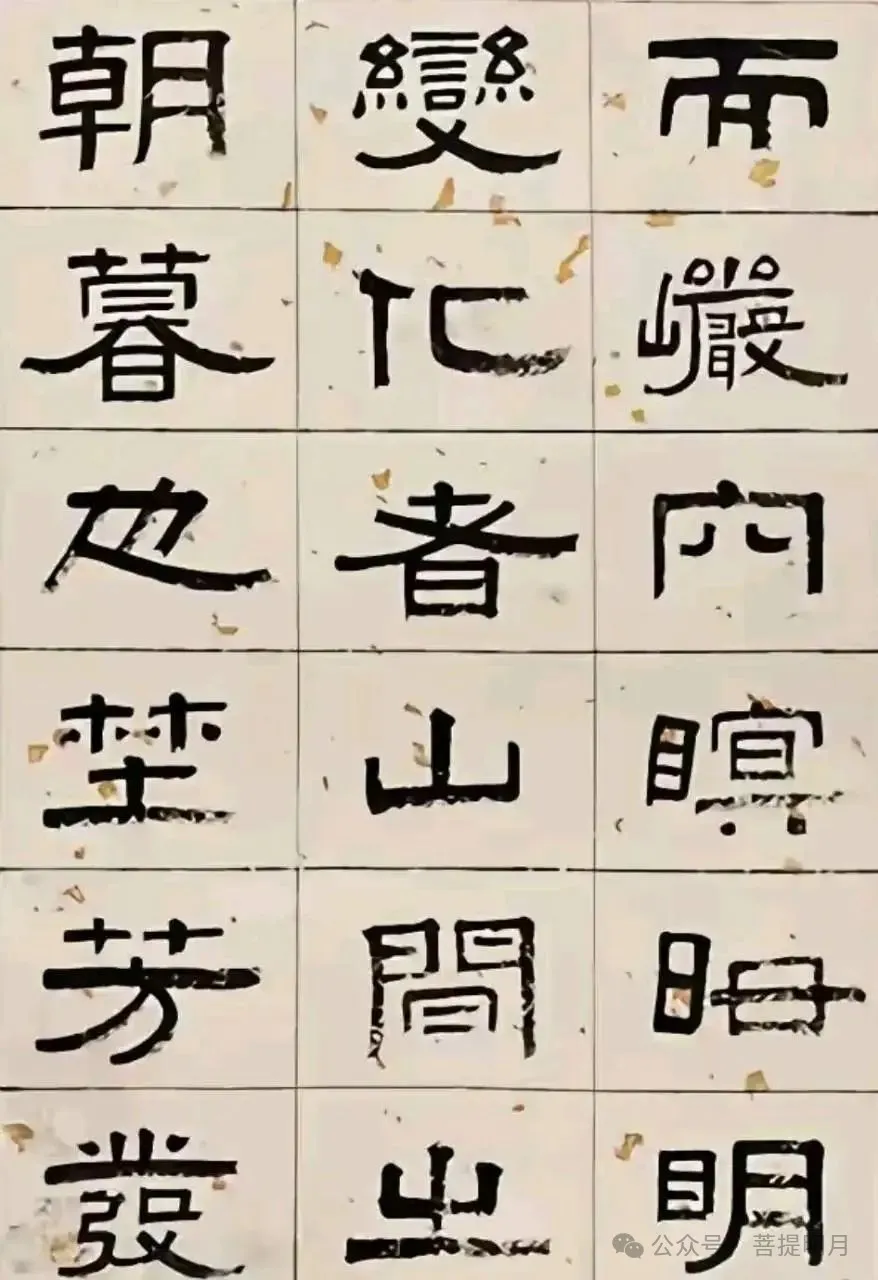 而巖穴瞑晦眀
變化者山間之
朝暮也埜芳發
公众号 · 菩提明月